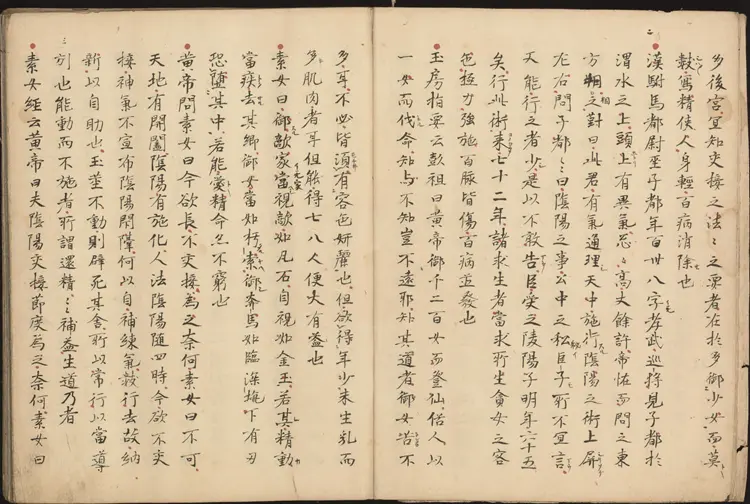 多後宮宜知交接之法〻之要者在於多御少女而莫
數寫精使人身輕百病消除也
漢駙馬都尉巫子都年百卅八字孝武巡狩見子都於
渭水之上頭上有異氣忩〻高丈餘許帝怪而問之東
方朔相之對曰此君有氣通理天中施術陰陽之術上屏
左右問子都〻曰陰陽之事公中之私臣子所不宜言
又能行之者少是以不敢告臣受之陵陽子明年六十五
矣行此術来七十二年諸求生者當求所生貪女之容
色極力強施百脉皆傷百病並發也
玉房指要云彭祖曰黃帝御千二百女而登仙俗人以
一女而伐命知与不知豈不遠耶知其道者御女苦不
多耳不必皆須有容色妍麗也但欲得年少未生乳而
多肌肉者耳但能得七八人便大有益也
素女曰御敵家當視敵如瓦石自視如金玉若其精動
當疾去其鄉御女當如朽索御奔馬如臨深坑下有刃
恐墮其中若能愛精命亦不窮也
黃帝問素女曰今欲長不交接為之奈何素女曰不可
天地有開闔陰陽有施化人法陰陽隨四時今欲不交
接神氣不宣布陰陽閇隔何以自補練氣數行去故納
新以自助也玉莖不動則辟死其舍所以常行以當導
引也能動而不施者所謂還精〻〻補益生道乃著
素女經云黃帝曰夫陰陽交接節度為之奈何素女曰